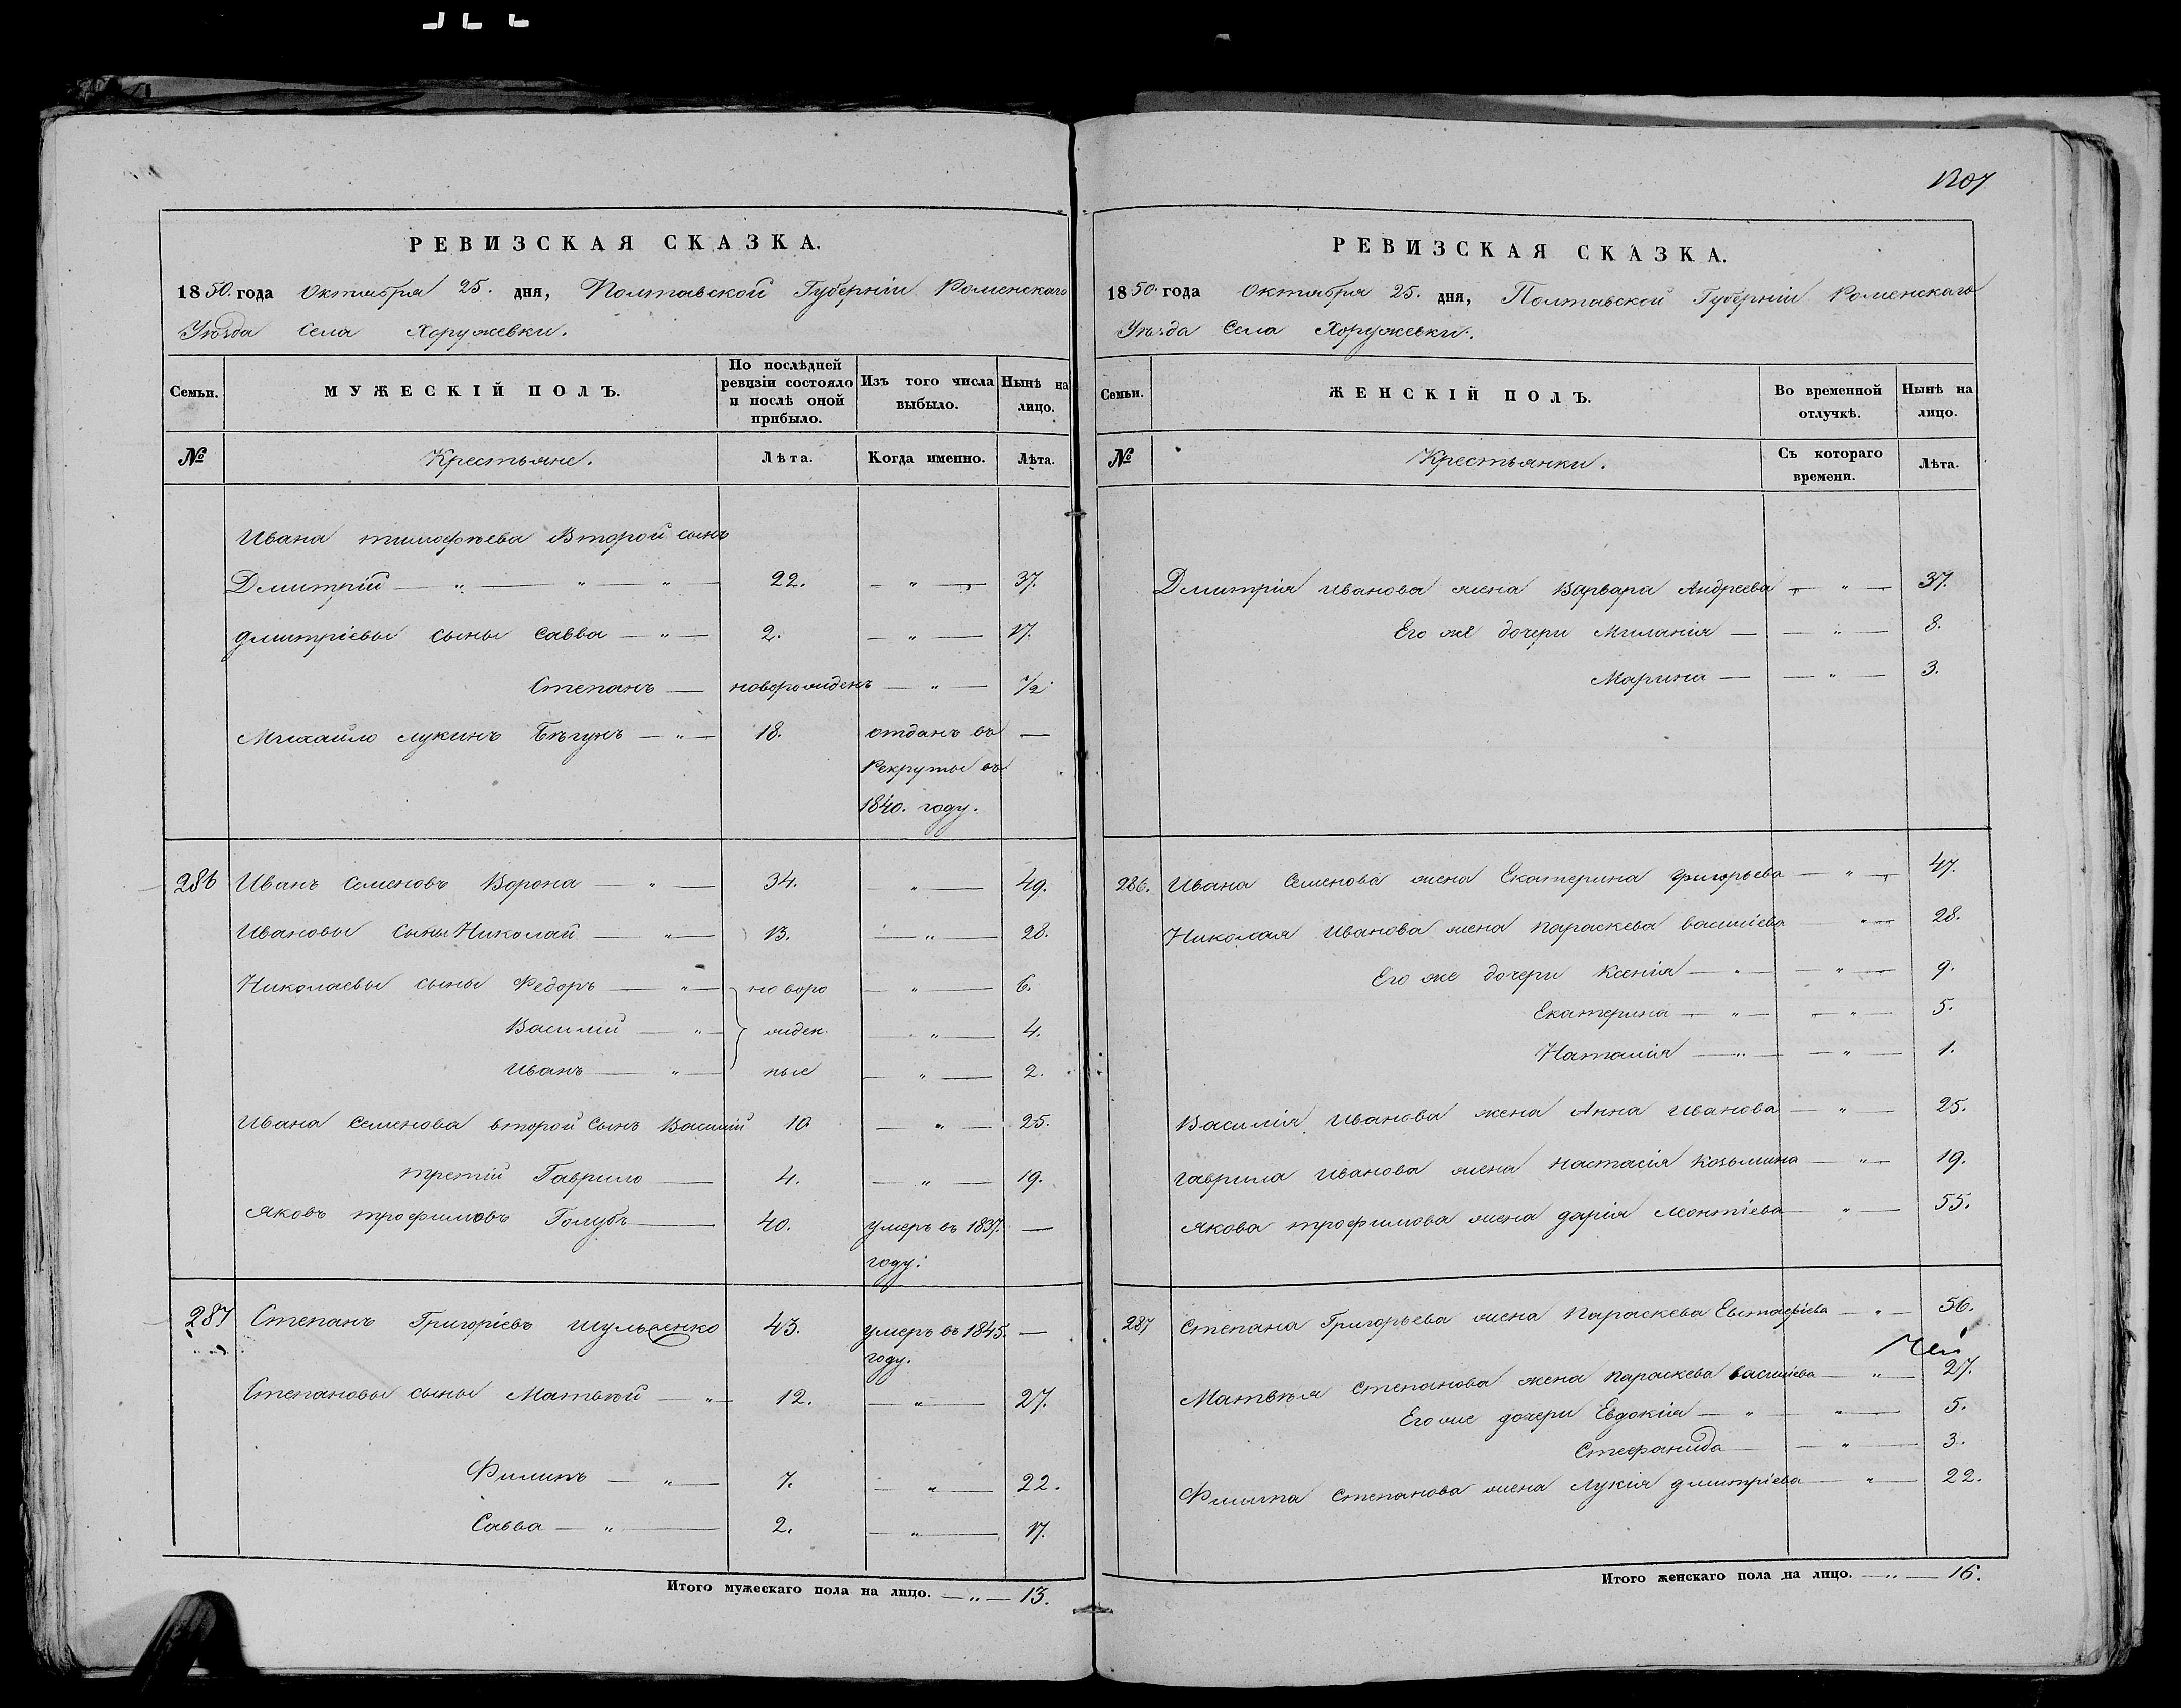 РЕВИЗСКАЯ СКАЗКА.
1850. года Октября 25. дня, Полтавской Губерніи Роменскаго
Уѣзда Села Хоружевки.
Семьи. МУЖЕСКІЙ ПОЛЪ. По послѣдней ревизіи состояло и послѣ оной прибыло. Изъ того числа выбыло. Нынѣ на лицо.
№ Крестьяне. Лѣта. Когда именно. Лѣта.
Ивана тимофѣева Второй сынъ
Дмитрій — „ — „ — „ — 22. — „ — 37.
дмитріевы сыны Савва — „ — 2. — „ — 17.
Степанъ — новорожденъ — „ — 1/2
Михайло лукинъ Бѣгунъ — „ — 18. отданъ въ —
Рекруты въ
1840. году.
286 Иванъ Семеновъ Ворона — „ — 34. — „ — 49.
Ивановы сыны Николай — „ — 13. — „ — 28.
Николаевы сыны Федоръ — „ — новоро — „ — 6.
Василій — „ — жден. — „ — 4.
Иванъ — „ — ные — „ — 2.
Ивана Семенова второй Сынъ Василій 10 — „ — 25.
третій Гаврило — 4. — „ — 19.
Яковъ трофимовъ Голубъ — 40. умеръ въ 1837. —
году.
287 Степанъ Григоріевъ Шульженко 43. умеръ въ 1845. —
году.
Степановы сыны Матвѣй — „ — 12. — „ — 27.
Филипъ — „ — 7. — „ — 22.
Савва — „ — 2. — „ — 17.
Итого мужескаго пола на лицо. — „ — 13.
1207
РЕВИЗСКАЯ СКАЗКА.
1850. года Октября 25. дня, Полтавской Губерніи Роменскаго
Уѣзда Села Хоружевки.
Семьи. ЖЕНСКІЙ ПОЛЪ. Во временной отлучкѣ. Нынѣ на лицо.
№ Крестьянки. Съ котораго времени. Лѣта.
Дмитрія иванова жена Варвара Андреева — „ — 37.
Его же дочери Миланія — — „ — 8.
Марина — — „ — 3.
286. Ивана Семенова жена Екатерина григорьева — „ — 47.
Николая Иванова жена параскева василіева — „ — 28.
Его же дочери Ксенія — „ — — „ — 9.
Екатерина — „ — — „ — 5.
Наталія — „ — — „ — 1.
Василія Иванова жена Анна иванова — „ — 25.
гаврила иванова жена настасія козьмина — „ — 19.
якова трофимова жена дарія леонтіева — „ — 55.
287 Степана Григорьева жена Параскева Евстафіева — „ — 56.
Матвѣя степанова жена параскева василіева — „ — 27.
Его же дочери Евдокія — „ — „ — 5.
Стефанида — — „ — 3.
Филипа степанова жена Лукія дмитріева — „ — 22.
Итого женскаго пола на лицо. — „ — 16.